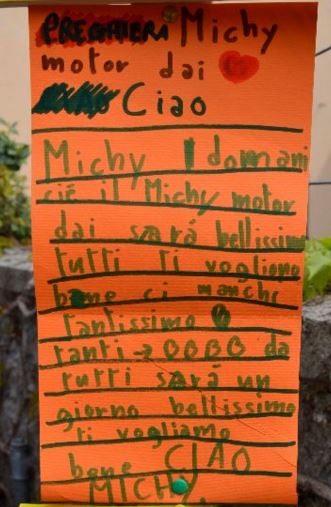 PREGHIERA Michy
motor dai
Ciao
Michy domani
cié il Michy motor
dai sará bellissimo
tutti ti vogliono
bene ci manchi
tantissimo
tanti → da
tutti sará un
giorno bellissimo
ti vogliamo
bene CIAO
MICHY.